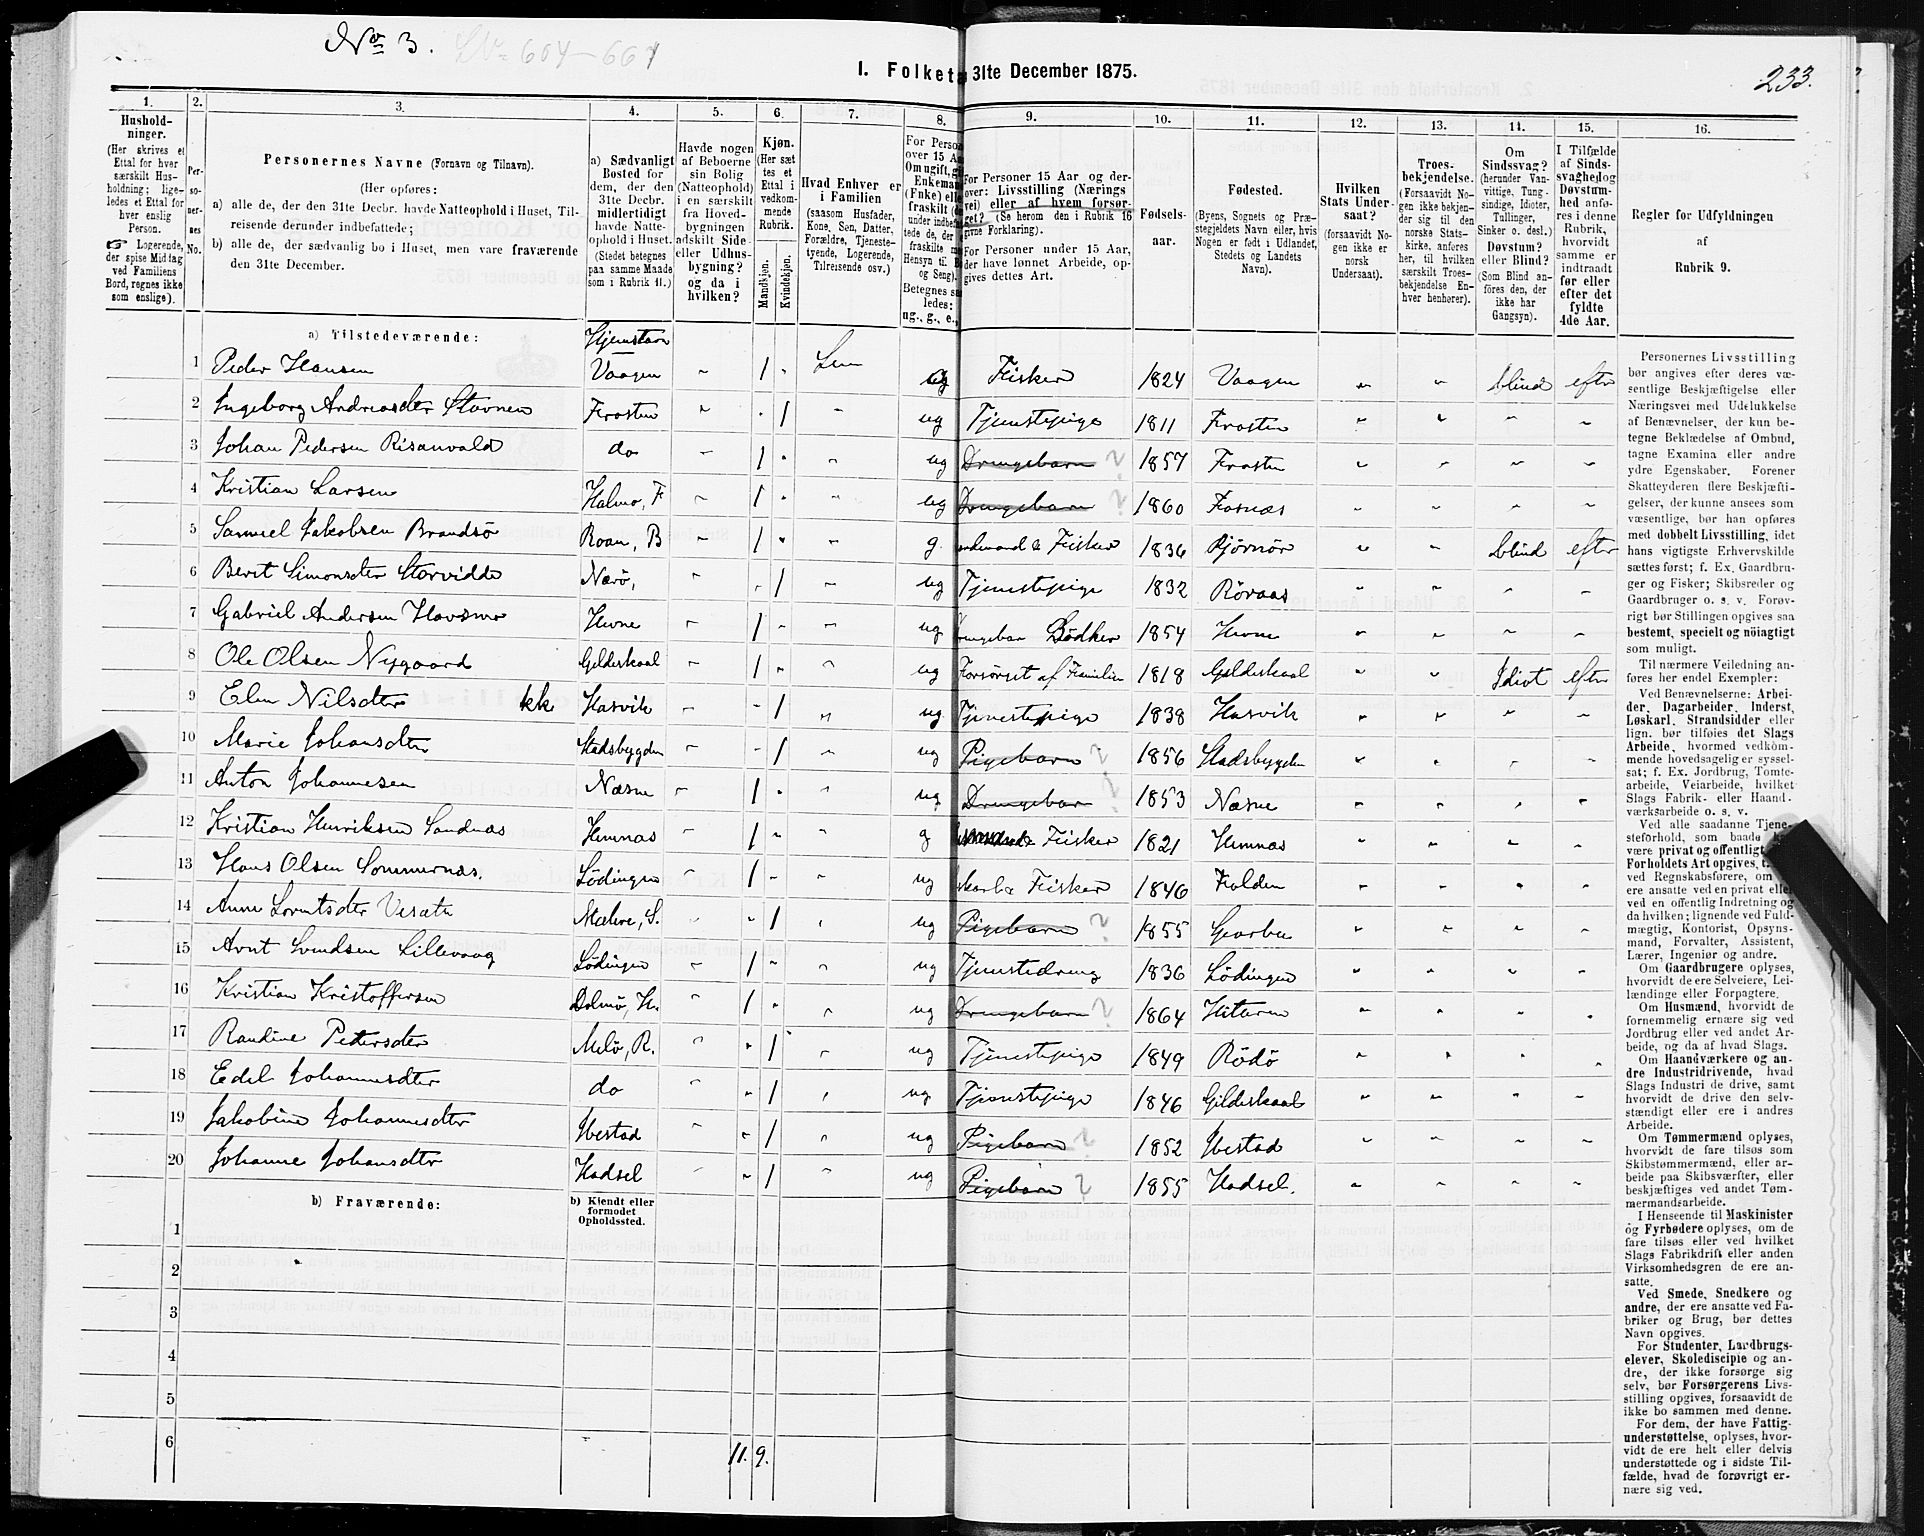 No 3. 604-661
I. Folket 31te December 1875.
233.
1. 2. 3. 4. 5. 6. 7. 8. 9. 10. 11. 12. 13. 14. 15. 16.
Hushold-
ninger.
(Her skrives et
Ettal for hver
særskilt Hus-
holdning; lige-
ledes et Ettal for
hver enslig
Person.
☞ Logerende,
der spise Middag
ved Familiens
Bord, regnes ikke
som enslige).
Per-
so-
ner-
nes
No.
Personernes Navne (Fornavn og Tilnavn).
(Her opføres:
a) alle de, der den 31te Decbr. havde Natteophold i Huset, Til-
reisende derunder indbefattede;
b) alle de, der sædvanlig bo i Huset, men vare fraværende
den 31te December.
a) Sædvanligt
Bosted for
dem, der den
31te Decbr.
midlertidigt
havde Natte-
ophold i Huset.
(Stedet betegnes
paa samme Maade
som i Rubrik 11.)
Havde nogen
af Beboerne
sin Bolig
(Natteophold)
i en særskilt
fra Hoved-
bygningen
adskilt Side-
eller Udhus-
bygning?
og da i
hvilken?
Kjøn.
(Her sæt
tes et
Ettal i
vedkom-
mende
Rubrik.
Mandkjøn.
Kvindekjøn.
Hvad Enhver er
i Familien
(saasom Husfader,
Kone, Søn, Datter,
Forældre, Tjeneste-
tyende, Logerende,
Tilreisende osv.)
For Perso
over 15 A
Om ugift, gi
Enkeman
(Enke) elle
fraskilt
under indbef
tede de, der
fraskilte m
Hensyn til B
og Seng).
Betegnes sa
ledes:
ug., g., e.,
For Personer 15 Aar og der-
over: Livsstilling (Nærings
vei) eller af hvem forsør-
get? (Se herom den i Rubrik 16
givne Forklaring).
For Personer under 15 Aar,
der have lønnet Arbeide, op-
gives dettes Art.
Fødsels-
aar.
Fødested.
(Byens, Sognets og Præ-
stegjeldets Navn eller, hvis
Nogen er født i Udlandet,
Stedets og Landets
Navn).
Hvilken
Stats Under-
saat?
(forsaavidt No-
gen ikke er
norsk
Undersaat).
Troes-
bekjendelse.
(Forsaavidt No-
gen ikke bekjen-
der sig til den
norske Stats-
kirke, anføres
her, til hvilken
særskilt Troes-
bekjendelse En-
hver henhører).
Om
Sindssvag?
(herunder Van-
vittige, Tung-
sindige, Idioter,
Tullinger,
Sinker o. desl.)
Døvstum?
eller Blind?
(Som Blind an-
føres den, der
ikke har
Gangsyn).
I Tilfælde
af Sinds-
svaghed og
Døvstum-
hed anfø-
res i denne
Rubrik,
hvorvidt
samme er
indtraadt
før eller
efter det
fyldte
4de Aar.
Regler for Udfyldningen
af
Rubrik 9.
a) Tilstedeværende: Hjemstavn
1 Peder Hansen Vaagen - 1 - Lem ug Fisker 1824 Vaagen - - blind efter
2 Ingeborg Andreasdter Stavnen Frosten - - 1 - ug Tjenestepige 1811 Frosten - - - -
3 Johan Pedersen Risanvald do - 1 - - ug Drengebarn ? 1857 Frosten - - - -
4 Kristian Larsen Halmo, F - 1 - - ug Drengebarn ? 1860 Fosnæs - - - -
5 Samuel Jakobsen Brandsø Roan, B - 1 - - g. Fisker 1836 Bjørnør - - blind efter
6 Berit Simonsdter Storvidde Nærø, - - 1 - ug Tjenestepige 1832 Røraas - - - -
7 Gabriel Andersen Havsmo Hevne - 1 - - ug Bødker 1854 Hevne - - - -
8 Ole Olsen Nygaard Gildeskaal - 1 - - ug Forsørget af Familien 1818 Gildeskaal - - Idiot efter
9 Elen Nilsdter kk Hasvik - - 1 - ug Tjenestepige 1838 Hasvik - - - -
10 Marie Johansdter Stadsbygden - - 1 - ug Pigebarn ? 1856 Stadsbygden - - - -
11 Anton Johannesen Næsne - 1 - - ug Drengebarn ? 1853 Næsne - - - -
12 Kristian Henriksen Sandnæs Hemnæs - 1 - - g Fisker 1821 Hemnæs - - - -
13 Hans Olsen Sommernæs. Lødingen - 1 - - ug Fisker 1846 Folden - - - -
14 Anne Lorntsdter Melhve, S. - - 1 - ug Pigebarn ? 1855 - - - -
15 Arnt Svendsen Lillevaag Lødingen - 1 - - ug Tjenestedreng 1836 Lødingen - - - -
16 Kristian Kristoffersen Dolmø, H. - 1 - - ug Drengebarn ? 1864 Hitteren - - - -
17 Randine Petersdter Melø, R. - - 1 - ug Tjenestepige 1849 Rødø - - - -
18 Edel Johannesdter do - - 1 - ug Tjenestepige 1846 Gildeskaal - - - -
19 Jakobine Johannesdter Ibestad - - 1 - ug Pigebarn ? 1852 Ibestad - - - -
20 Johanne Johansdter Hadsel - - 1 - ug Pigebarn ? 1855 Hadsel. - - - -
b) Fraværende: b) Kjendt eller
formodet
Opholdssted.
1
2
3
4
5
6
11. 9.
Personernes Livsstilling
bør angives efter deres væ-
sentlige Beskjæftigelse eller
Næringsvei med Udelukkelse
af Benævnelser, der kun be-
tegne Beklædelse af Ombud,
tagne Examina eller andre
ydre Egenskaber. Forener
Skatteyderen flere Beskjæfti-
gelser, der kunne ansees som
væsentlige, bør han opføres
med dobbelt Livsstilling, idet
hans vigtigste Erhvervskilde
sættes først; f. Ex. Gaardbru-
ger og Fisker; Skibsreder og
Gaardbruger o. s. v. Forøv-
rigt bør Stillingen opgives saa
bestemt, specielt og nøiagtigt
som muligt.
Til nærmere Veiledning an-
føres her endel Exempler:
Ved Benævnelserne: Arbei-
der, Dagarbeider, Inderst,
Løskarl, Strandsidder eller
lign. bør tilføies det Slags
Arbeide, hvormed vedkom-
mende hovedsagelig er syssel-
sat; f. Ex. Jordbrug, Tomte-
arbeide, Veiarbeide, hvilket
Slags Fabrik- eller Haand-
værksarbeide o. s. v.
Ved alle saadanne Tjene-
steforhold, som baade
være privat og offentligt,
Forholdets Art opgives,
ved Regnskabsførere, om
ere ansatte ved en privat eller
ved en offentlig Indretning og
da hvilken; lignende ved Fuld-
mægtig, Kontorist, Opsyns-
mand, Forvalter, Assistent,
Lærer, Ingeniør og andre.
Om Gaardbrugere oplyses,
hvorvidt de ere Selveiere, Lei-
lændinge eller Forpagtere.
Om Husmænd, hvorvidt de
fornemmelig ernære sig ved
Jordbrug eller ved andet Ar-
beide, og da af hvad Slags.
Om Haandværkere og an-
dre Industridrivende, hvad
Slags Industri de drive, samt
hvorvidt de drive den selv-
stændigt eller ere i andres
Arbeide.
Om Tømmermænd oplyses,
hvorvidt de fare tilsøs som
Skibstømmermænd, eller ar-
beide paa Skibsværfter, eller
beskjæftiges ved andet Tøm-
mermandsarbeide.
I Henseende til Maskinister
og Fyrbødere oplyses, om de
fare tilsøs eller ved hvilket
Slags Fabrikdrift eller anden
Virksomhedsgren de ere an-
satte.
Ved Smede, Snedkere og
andre, der ere ansatte ved Fa-
briker og Brug, bør dettes
Navn opgives.
For Studenter, Landbrugs-
elever, Skoledisciple og an-
dre, der ikke forsørge sig
selv, bør Forsørgerens Livs-
stilling opgives, forsaavidt de
ikke bo sammen med denne.
For dem, der have Fattig-
understøttelse, oplyses, hvor-
vidt de ere helt eller delvis
understøttede og i sidste Til-
fælde, hvad de forøvrigt er-
nære sig ved.